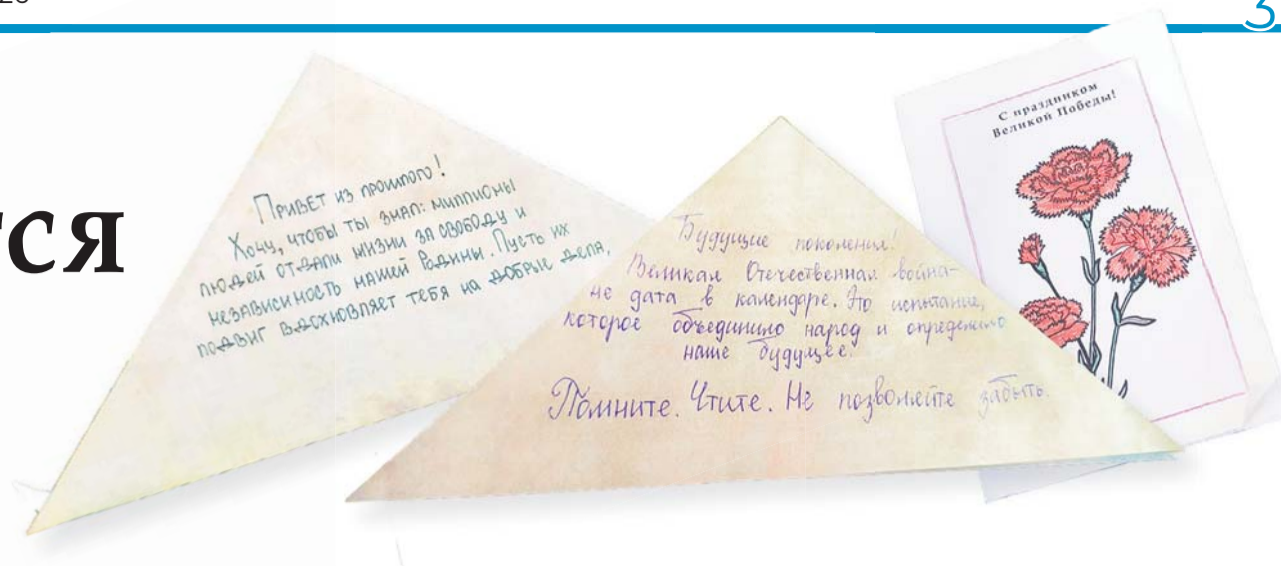 3
тся
Привет из прошлого!
Хочу, чтобы ты знал: миллионы
людей отдали жизни за свободу и
независимость нашей Родины. Пусть их
подвиг вдохновляет тебя на добрые дела,
Будущие поколения!
Великая Отечественная война-
не дата в календаре. Это испытание,
которое объединило народ и определило
наше будущее.
Помните. Чтите. Не позволяйте забыть.
С праздником
Великой Победы!